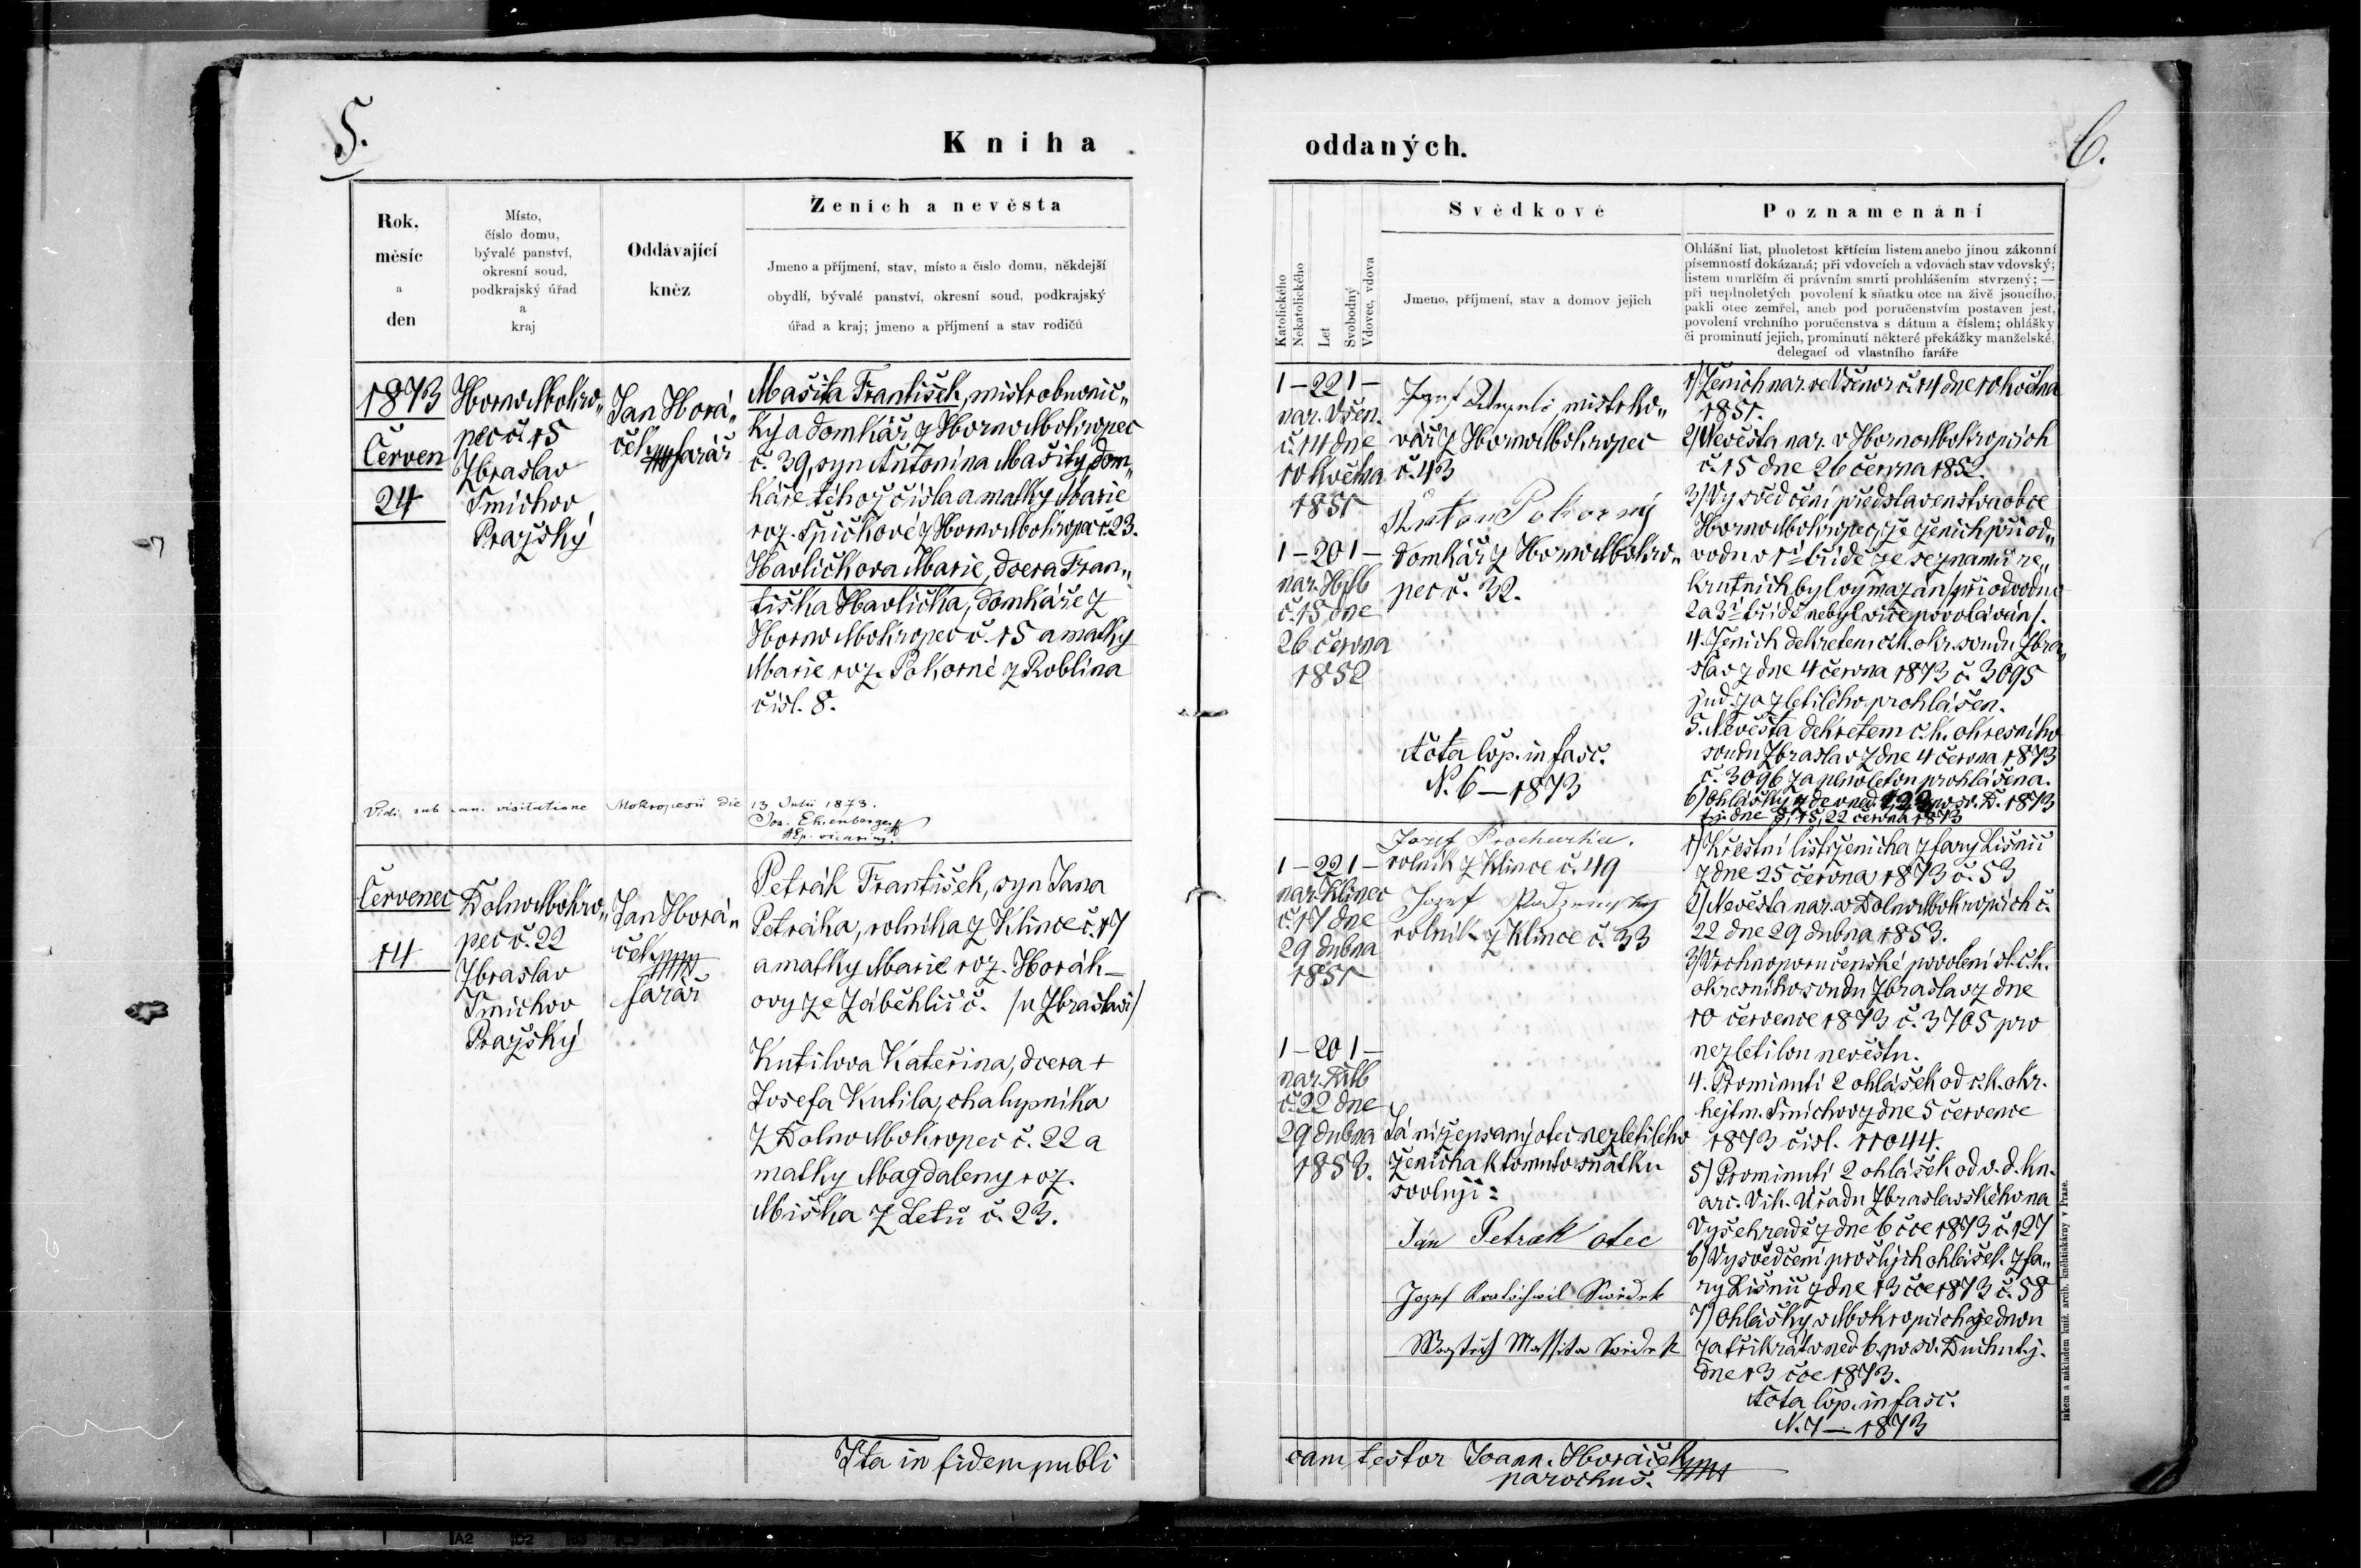 5.
Kniha
Rok,
měsíc
a
den
Místo,
číslo domu,
bývalé panství,
okresní soud,
podkrajský úřad
a
kraj
Oddávající
kněz
Ženich a nevěsta
Jmeno a příjmení, stav, místo a číslo domu, někdejší
obydlí, bývalé panství, okresní soud, podkrajský
úřad a kraj; jmeno a příjmení a stav rodičů
1873
Červen
24
HornoMokro„
pec č. 15
Zbraslav
Smíchov
Pražský
Jan Horá„
ček
farář
Mašita František, mistr obuvnic„
ký a domkář z HornoMokropec
č. 39, syn Antonína Mašity, dom„
káře téhož čísla a matky Marie
roz. Špičkové z HornoMokropec č. 23.
Havlíčkova Marie, dcera Fran„
tiška Havlíčka, domkáře z
HornoMokropec č. 15 a matky
Marie roz. Pokorné z Roblína
čísl. 8.
Vidi sub can. visitatione Mokropesii die 13 Julii 1873.
Jos. Ehrenberger
Ep. vicarius.
Červenec
14
DolnoMokro„
pec č. 22
Zbraslav
Smíchov
Pražský
Jan Horá„
ček
farář
Petrák František, syn Jana
Petráka, rolníka z Klínce č. 17
a matky Marie roz. Horák-
ovy ze Záběhlic č. /u Zbraslavi/
Kutilova Kateřina, dcera +
Josefa Kutila, chalupníka
z DolnoMokropec č. 22 a
matky Magdaleny roz.
Miška z Letů č. 23.
Ita in fidem publi
6.
oddaných.
Katolického
Nekatolického
Let
Svobodný
Vdovec, vdova
Svědkové
Jmeno, příjmení, stav a domov jejich
Poznamenání
Ohlášní list, plnoletost křtícím listem anebo jinou zákonní
písemností dokázaná; při vdovcích a vdovách stav vdovský;
listem umrlčím či právním smrti prohlášením stvrzený; —
při neplnoletých povolení k sňatku otce na živě jsoucího,
pakli otec zemřel, aneb pod poručenstvím postaven jest,
povolení vrchního poručenstva s dátum a číslem; ohlášky
či prominutí jejich, prominutí některé překážky manželské,
delegací od vlastního faráře
1 — 22 1 —
nar. Všen.
č. 14 dne
10 května
1851
1 — 20 1 —
nar. HMb
č. 15 dne
26 června
1852
Jozef
mistr ko„
vář z HornoMokropec
č. 43
Anton Pokorný
domkář z HornoMokro„
pec č. 32.
Acta cop. in fasc.
N. 6 — 1873
1) Ženich nar. ve Všenor. č. 14 dne 10 května
1851.
2) Nevěsta nar. v HornoMokropcích
č. 15 dne 26 června 1852
3) Vysvědčení představenstva obce
HornoMokropec, že ženich při od„
vodu v 1é třídě ze seznamu re„
krutních byl vymazán /při odvodu
2 a 3í třídě nebyl více povoláván/.
4. Ženich dekretem c.k. okr. soudu Zbra„
slav z dne 4 června 1873 č. 3095
jud. za zletilého prohlášen.
5. Nevěsta dekretem c.k. okresního
soudu Zbraslav z dne 4 června 1873
č. 3096 za plnoletou prohlášena.
6) Ohlášky zde v ned. 1, 2, 3 po sv. D. 1873
t.j. dne 8, 15, 22 června 1873
1 — 22 1 —
nar. Klínec
č. 17 dne
29 dubna
1851
1 — 20 1 —
nar. DMb
č. 22 dne
29 dubna
1853.
Jozef Procharka.
rolník z Klínce č. 49
Jozef
rolník z Klínce č. 33
Já nížepsaný otec nezletilého
ženicha k tomuto sňatku
svoluji:
Ján Petrak otec
Jozef Kratochwil Swědek
Massita Swědek
1) Křestní list ženicha z fary Líšnic
z dne 25 června 1873 č. 53
2) Nevěsta nar. v DolnoMokropcích č.
22 dne 29 dubna 1853.
3) Vrchnoporučenské povolení sl. c.k.
okresního soudu Zbraslav z dne
10 července 1873 č. 3705 pro
nezletilou nevěstu.
4. Prominutí 2 ohlášek od c.k. okr.
hejtm. Smíchov z dne 5 července
1873 čísl. 11044.
5) Prominutí 2 ohlášek od v. d. kn.
arc. Vik. Úřadu Zbraslavského na
Vyšehradě z dne 6 čce 1873 č. 127
6) Vysvědčení prošlých ohlášek z fa„
ry Líšnic z dne 13 čce 1873 č. 58
7) Ohlášky v Mokropcích jednou
za třikrát v ned 6. po sv. Duchu t.j.
dne 13 čce 1873.
Acta cop. in fasc.
N. 7 — 1873
cam testor Joann. Horáček
parochus.